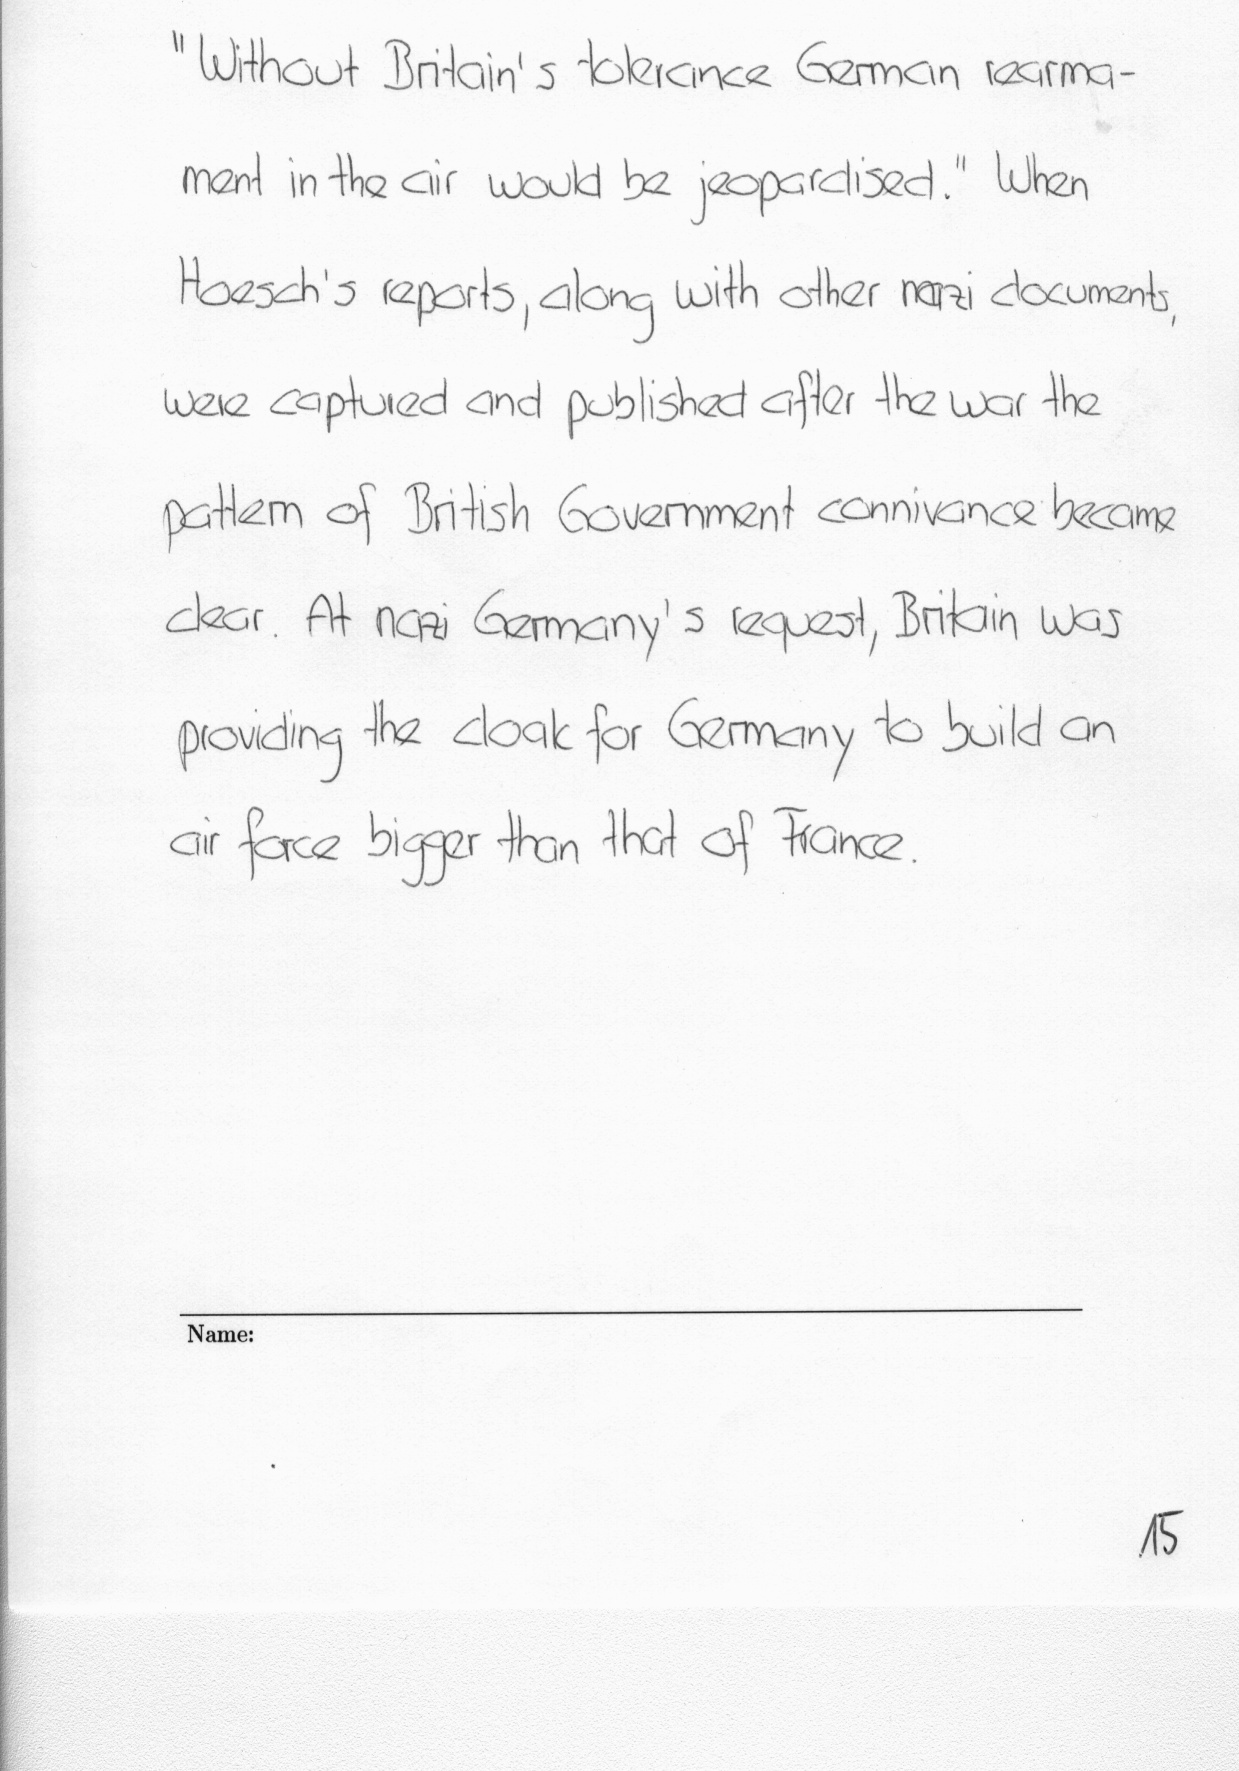 "Without Britain's tolerance German rearma-
ment in the air would be jeopardised." When
Hoesch's reports, along with other nazi documents,
were captured and published after the war the
pattern of British Government connivance became
clear. At nazi Germany's request, Britain was
providing the cloak for Germany to build an
air force bigger than that of France.
Name:
15